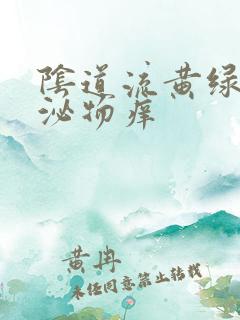 陰道流黄绿
泌物痒
黄冉
未经同意禁止转载